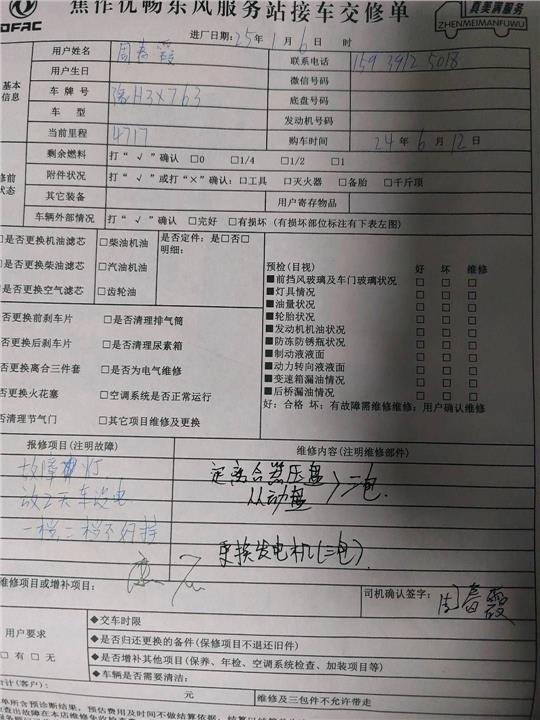 DFAC 焦作优畅东风服务站接车交修单 真美满服务
ZHENMEIMANFUWU
进厂日期:25年1月6日 时
用户姓名 联系电话 159 3912 5018
用户生日 微信号码
基本信息 车牌号 豫H3X763 底盘号码
车型 发动机号码
当前里程 4717 购车时间 24年6月12日
剩余燃料 打“√”确认 □0 □1/4 □1/2 □1
修前状态 附件状况 打“√”或打“×”确认:□工具 □灭火器 □备胎 □千斤顶
其它装备 用户寄存物品
车辆外部情况 打“√”确认 □完好 □有损坏 (有损坏部位标注有下表左图)
是否更换机油滤芯 □柴油机油 是否定件:是□否□
明细:
是否更换柴油滤芯 □汽油机油
是否更换空气滤芯 □齿轮油
预检(目视) 好 坏 维修
■前挡风玻璃及车门玻璃状况 □ □ □
■灯具情况 □ □ □
■油量状况 □ □ □
■轮胎状况 □ □ □
■发动机机油状况 □ □ □
■防冻防锈瓶状况 □ □ □
■制动液液面 □ □ □
■动力转向液液面 □ □ □
■变速箱漏油情况 □ □ □
■后桥漏油情况 □ □ □
好:合格 坏:有故障需维修维修:用户确认维修
否更换前刹车片 □是否清理排气筒
否更换后刹车片 □是否清理尿素箱
否更换离合三件套 □是否为电气维修
否更换火花塞 □空调系统是否正常运行
否清理节气门 □其它项目维修及更换
报修项目(注明故障) 维修内容(注明维修部件)
故障灯
放2天车没电
一档二档不好挂
定离合器压盘
从动盘 >三包.
更换发电机(三包).
维修项目或增补项目: 司机确认签字:
用户要求
□有 □无
◆交车时限
◆是否归还更换的备件(保修项目不退还旧件)
◆是否增补其他项目(保养、年检、空调系统检查、加装项目等)
◆车辆是否需要清洁:
合计(客户): 元 维修及三包件不允许带走